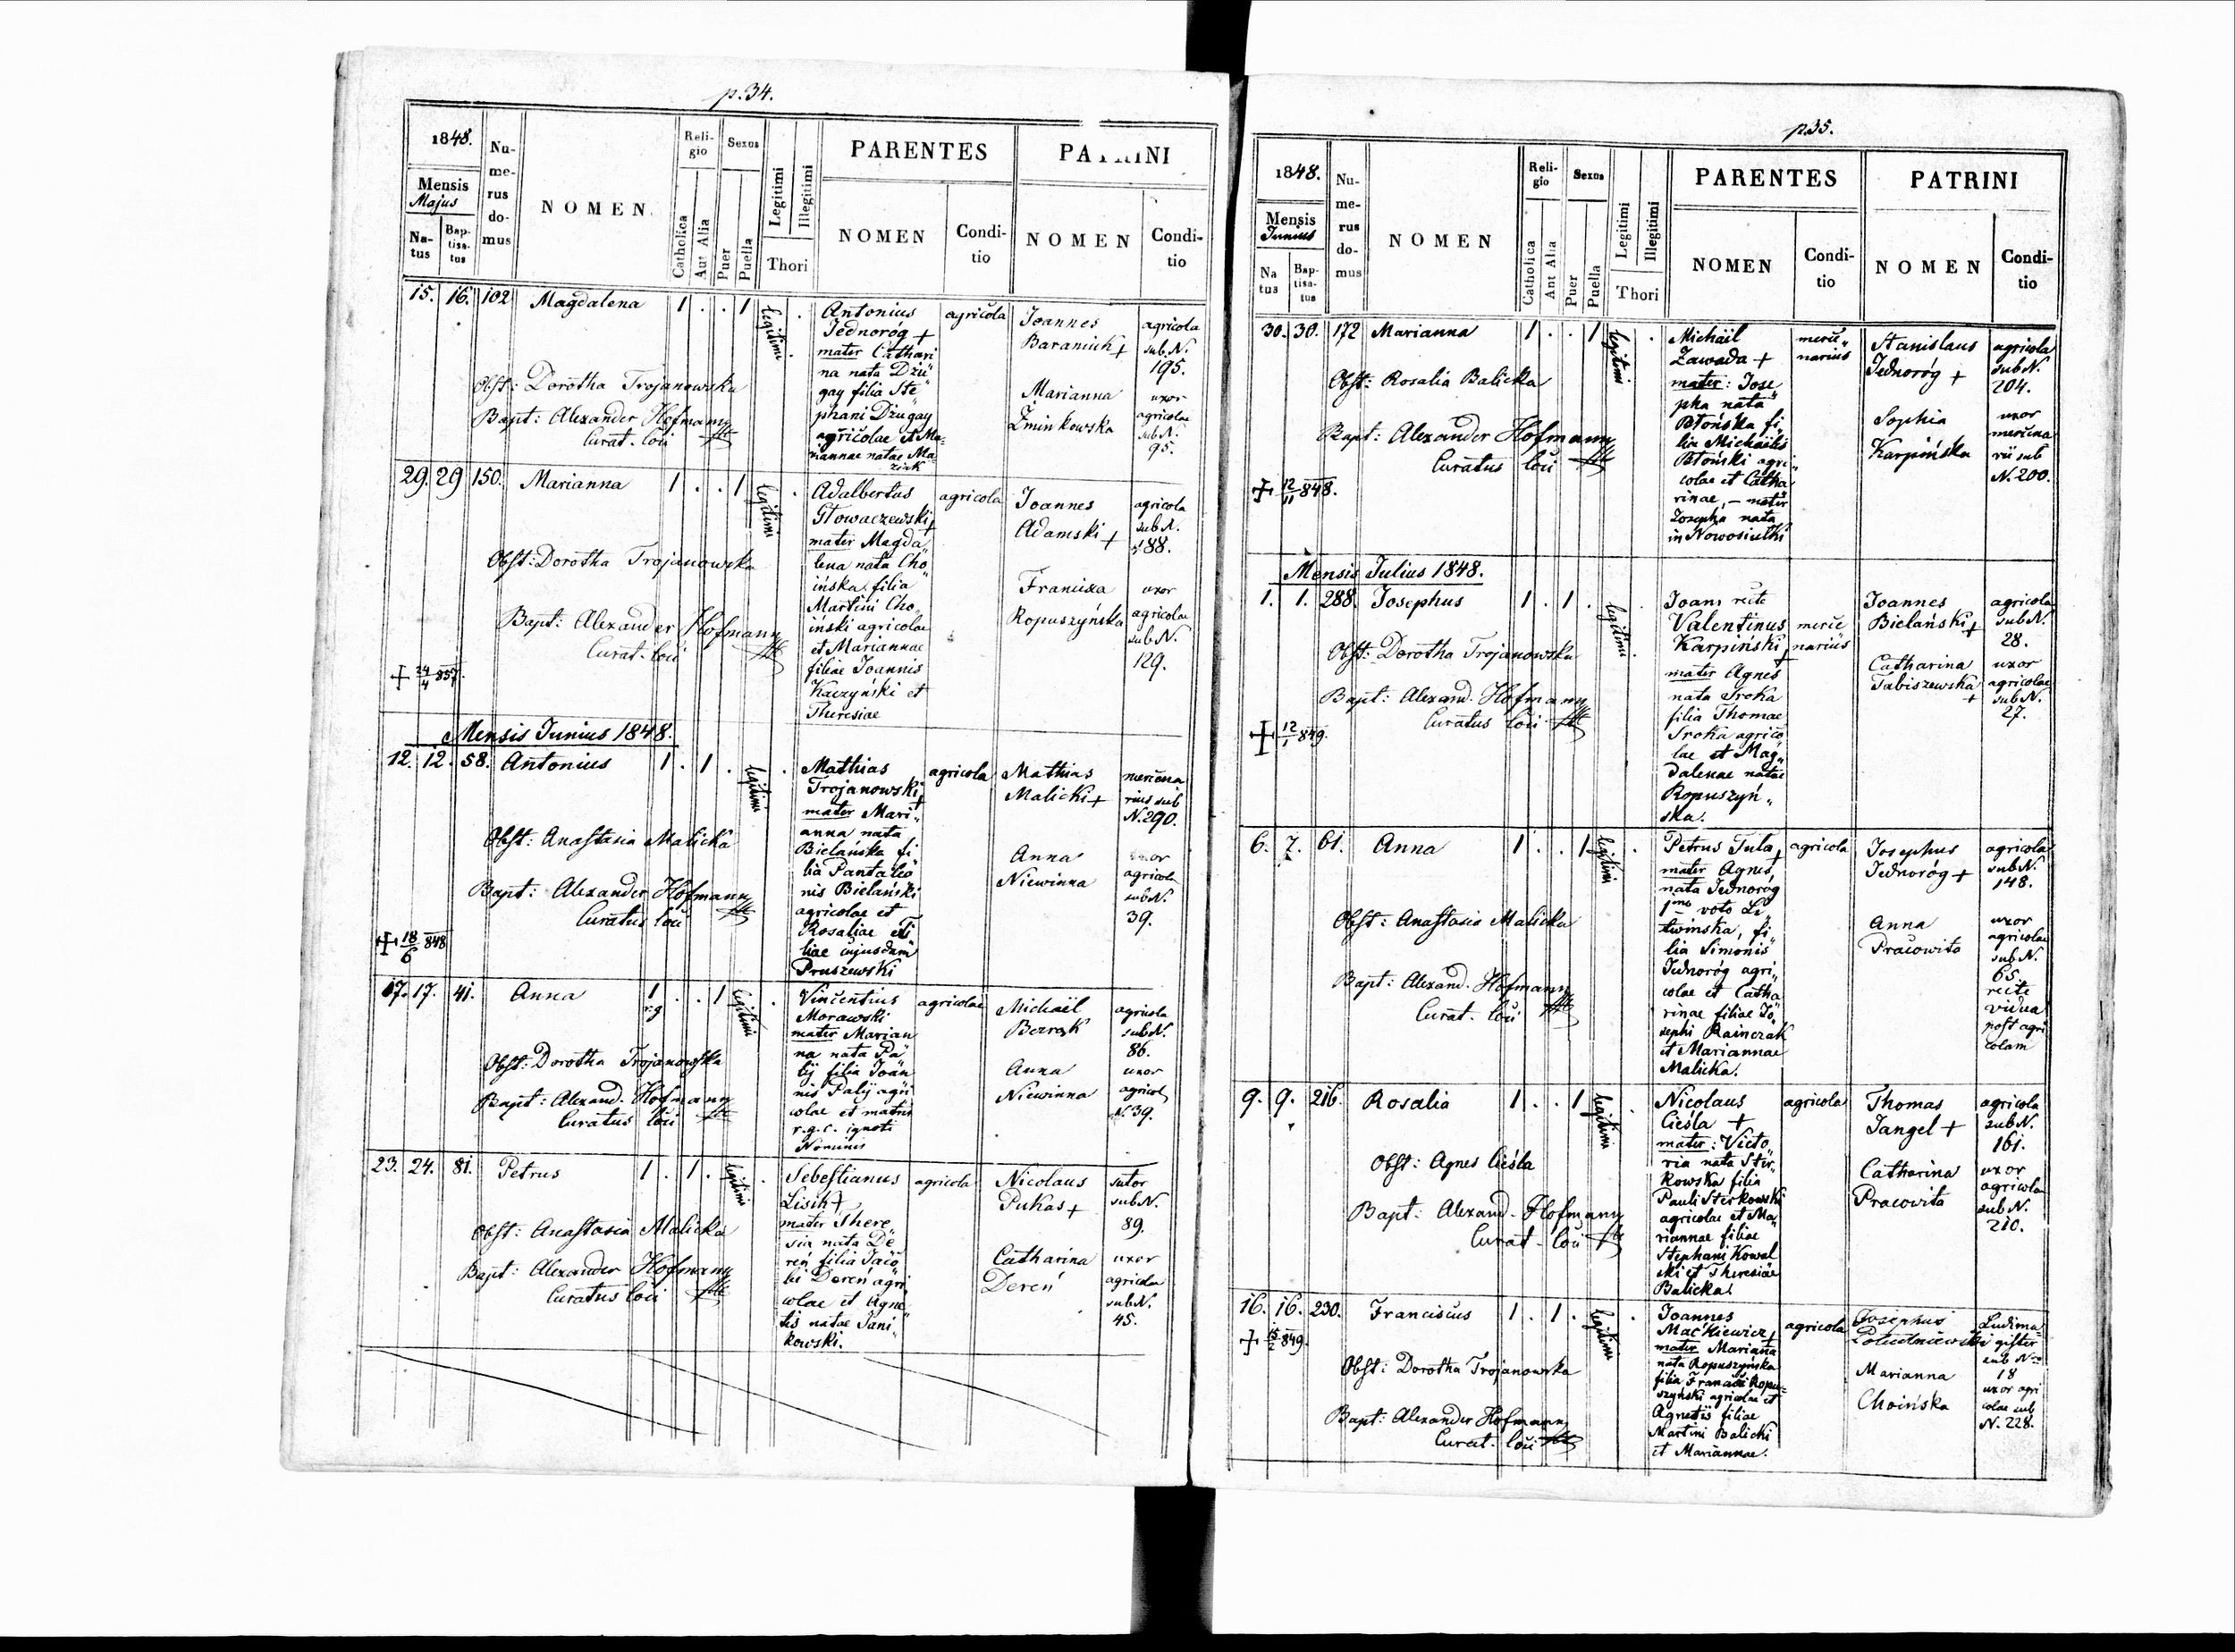 p. 34.
1848.
Mensis
Majus
Na-
tus
Bap-
tisa-
tus
Nu-
me-
rus
do-
mus
NOMEN
Reli-
gio
Catholica
Aut Alia
Sexus
Puer
Puella
Legitimi
Illegitimi
Thori
PARENTES
NOMEN
Condi-
tio
PATRINI
NOMEN
Condi-
tio
15. 16. 102 Magdalena 1 . . 1 legitimi .
Obst: Dorotha Trojanowska
Bapt: Alexander Hofmann
Curat. loci
Antonius
Jednoróg +
mater Cathari
na nata Dzu
gay filia Ste
phani Dzugay
agricolae et Ma-
riannae natae Ma-
agricola
Joannes
Baraniuk +
agricola
sub N.
195.
Marianna
Żminkowska
uxor
agricolae
sub N.
95.
29. 29 150. Marianna 1 . . 1 legitimi .
Obst: Dorotha Trojanowska
Bapt: Alexander Hofmann
Curat. loci
+ 24/4 857.
Adalbertus
Głowaczewski +
mater Magda„
lena nata Cho„
ińska filia
Martini Cho„
iński agricolae
et Mariannae
filiae Joannis
Kaczyński et
Theresiae
agricola
Joannes
Adamski +
agricola
sub N.
188.
Francisca
Ropuszyńska
uxor
agricolae
sub N.
129.
Mensis Junius 1848.
12. 12. 58. Antonius 1 . 1 . legitimi .
Obst: Anastasia Malicka
Bapt: Alexander Hofmann
Curatus loci
+ 18/6 848
Mathias
Trojanowski +
mater Mari„
anna nata
Bielańska fi
lia Pantaleo
nis Bielański
agricolae et
Rosaliae fi
liae cujusdam
Pruszewski
agricola
Mathias
Malicki +
mercena
rius sub
N. 290.
Anna
Niewinna
uxor
agricolae
sub N.
39.
17. 17. 41. Anna 1 . . 1 legitimi .
r.g
Obst: Dorotha Trojanowska
Bapt: Alexand. Hofmann
Curatus loci
Vincentius
Morawski
mater Marian
na nata Pa
lij filia Joan
nis Palij agri
colae et matris
r.g.c. ignoti
Nominis
agricolae
Michaël
agricola
sub N.
86.
Anna
Niewinna
uxor
agricol
N. 39.
23. 24. 81. Petrus 1 . 1 . legitimi .
Obst: Anastasia Malicka
Bapt: Alexander Hofmann
Curatus loci
Sebestianus
Lisik +
mater There
sia nata De
reń filia Jaco
bi Dereń agri
colae et Agne
tis natae Jani„
kowski.
agricola
Nicolaus
Pukas +
sutor
sub N.
89.
Catharina
Dereń
uxor
agricolae
sub N.
45.
p. 35.
1848.
Mensis
Junius
Na
tus
Bap-
tisa-
tus
Nu-
me-
rus
do-
mus
NOMEN
Reli-
gio
Catholica
Aut Alia
Sexus
Puer
Puella
Legitimi
Illegitimi
Thori
PARENTES
NOMEN
Condi-
tio
PATRINI
NOMEN
Condi-
tio
30. 30. 172 Marianna 1 . . 1 legitimi .
Obst: Rosalia Balicka
Bapt: Alexander Hofmann
Curatus loci
+ 12/11 848.
Michäil
Zawada +
mater: Jose
pha nata
Błońska fi„
lia Michaëlis
Błoński agri„
colae et Catha
rinae, – mater
Josepha nata
in Nowosiułki
merce„
narius
Stanislaus
Jednoróg +
agricola
sub N.
204.
Sophia
Karpińska
uxor
mercena
rii sub
N. 200.
Mensis Julius 1848.
1. 1. 288. Josephus 1 . 1 . legitimi .
Obst: Dorotha Trojanowska
Bapt: Alexand. Hofmann
Curatus loci
+ 12/1 849.
Joans recte
Valentinus
Karpiński +
mater Agnes
nata Sroka
filia Thomae
Sroka agrico
lae et Mag„
dalenae natae
Ropuszyń„
ska.
merce
narius
Joannes
Bielański +
agricola
sub N.
28.
Catharina
Tabiszewska +
uxor
agricolae
sub N.
27.
6. 7. 61. Anna 1 . . 1 legitimi .
Obst: Anastasia Malicka
Bapt: Alexand. Hofmann
Curat. loci
Petrus Tula +
mater Agnes,
nata Jednoróg
1mo voto Li
twinska, fi
lia Simonis
Jednoróg agri„
colae et Catha
rinae filiae Jo
sephi Rainczak
et Mariannae
Malicka.
agricola
Josephus
Jednoróg +
agricola
sub N.
148.
Anna
Pracowita
uxor
agricolae
sub N.
65.
recte
vidua
post agri
colam
9. 9. 216. Rosalia 1 . . 1 legitimi .
Obst: Agnes Cieśla
Bapt: Alexand. Hofmann
Curat. loci
Nicolaus
Cieśla +
mater: Victo
ria nata Ster„
kowska filia
Pauli Sterkowski
agricolae et Ma
riannae filiae
Stephani Kowal
ski et Theresiae
Balicka.
agricola
Thomas
Jangel +
agricola
sub N.
161.
Catharina
Pracovita
uxor
agricola
sub N.
210.
16. 16. 230. Franciscus 1 . 1 . legitimi .
Obst: Dorotha Trojanowska
Bapt: Alexander Hofmann
Curat. loci
Joannes
Mackiewicz +
mater Marianna
nata Ropuszyńska
filia Francisci Ropu-
szyński agricolae et
Agnetis filiae
Martini Balicki
et Mariannae.
agricola
Josephus
Ludima-
gister
sub Nro
18
Marianna
Choińska
uxor agri
colae sub
N. 228.